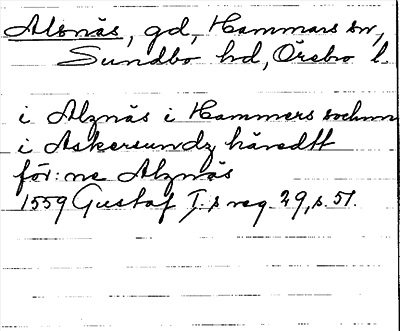 Alsnäs, gd, Hammars sn,
Sundbo hd, Örebro l.
i Alznäs i Hammers sochnn
i Askersundz häredtt
för: ne Alznäs
1559 Gustaf I:s reg. 29, s. 51.